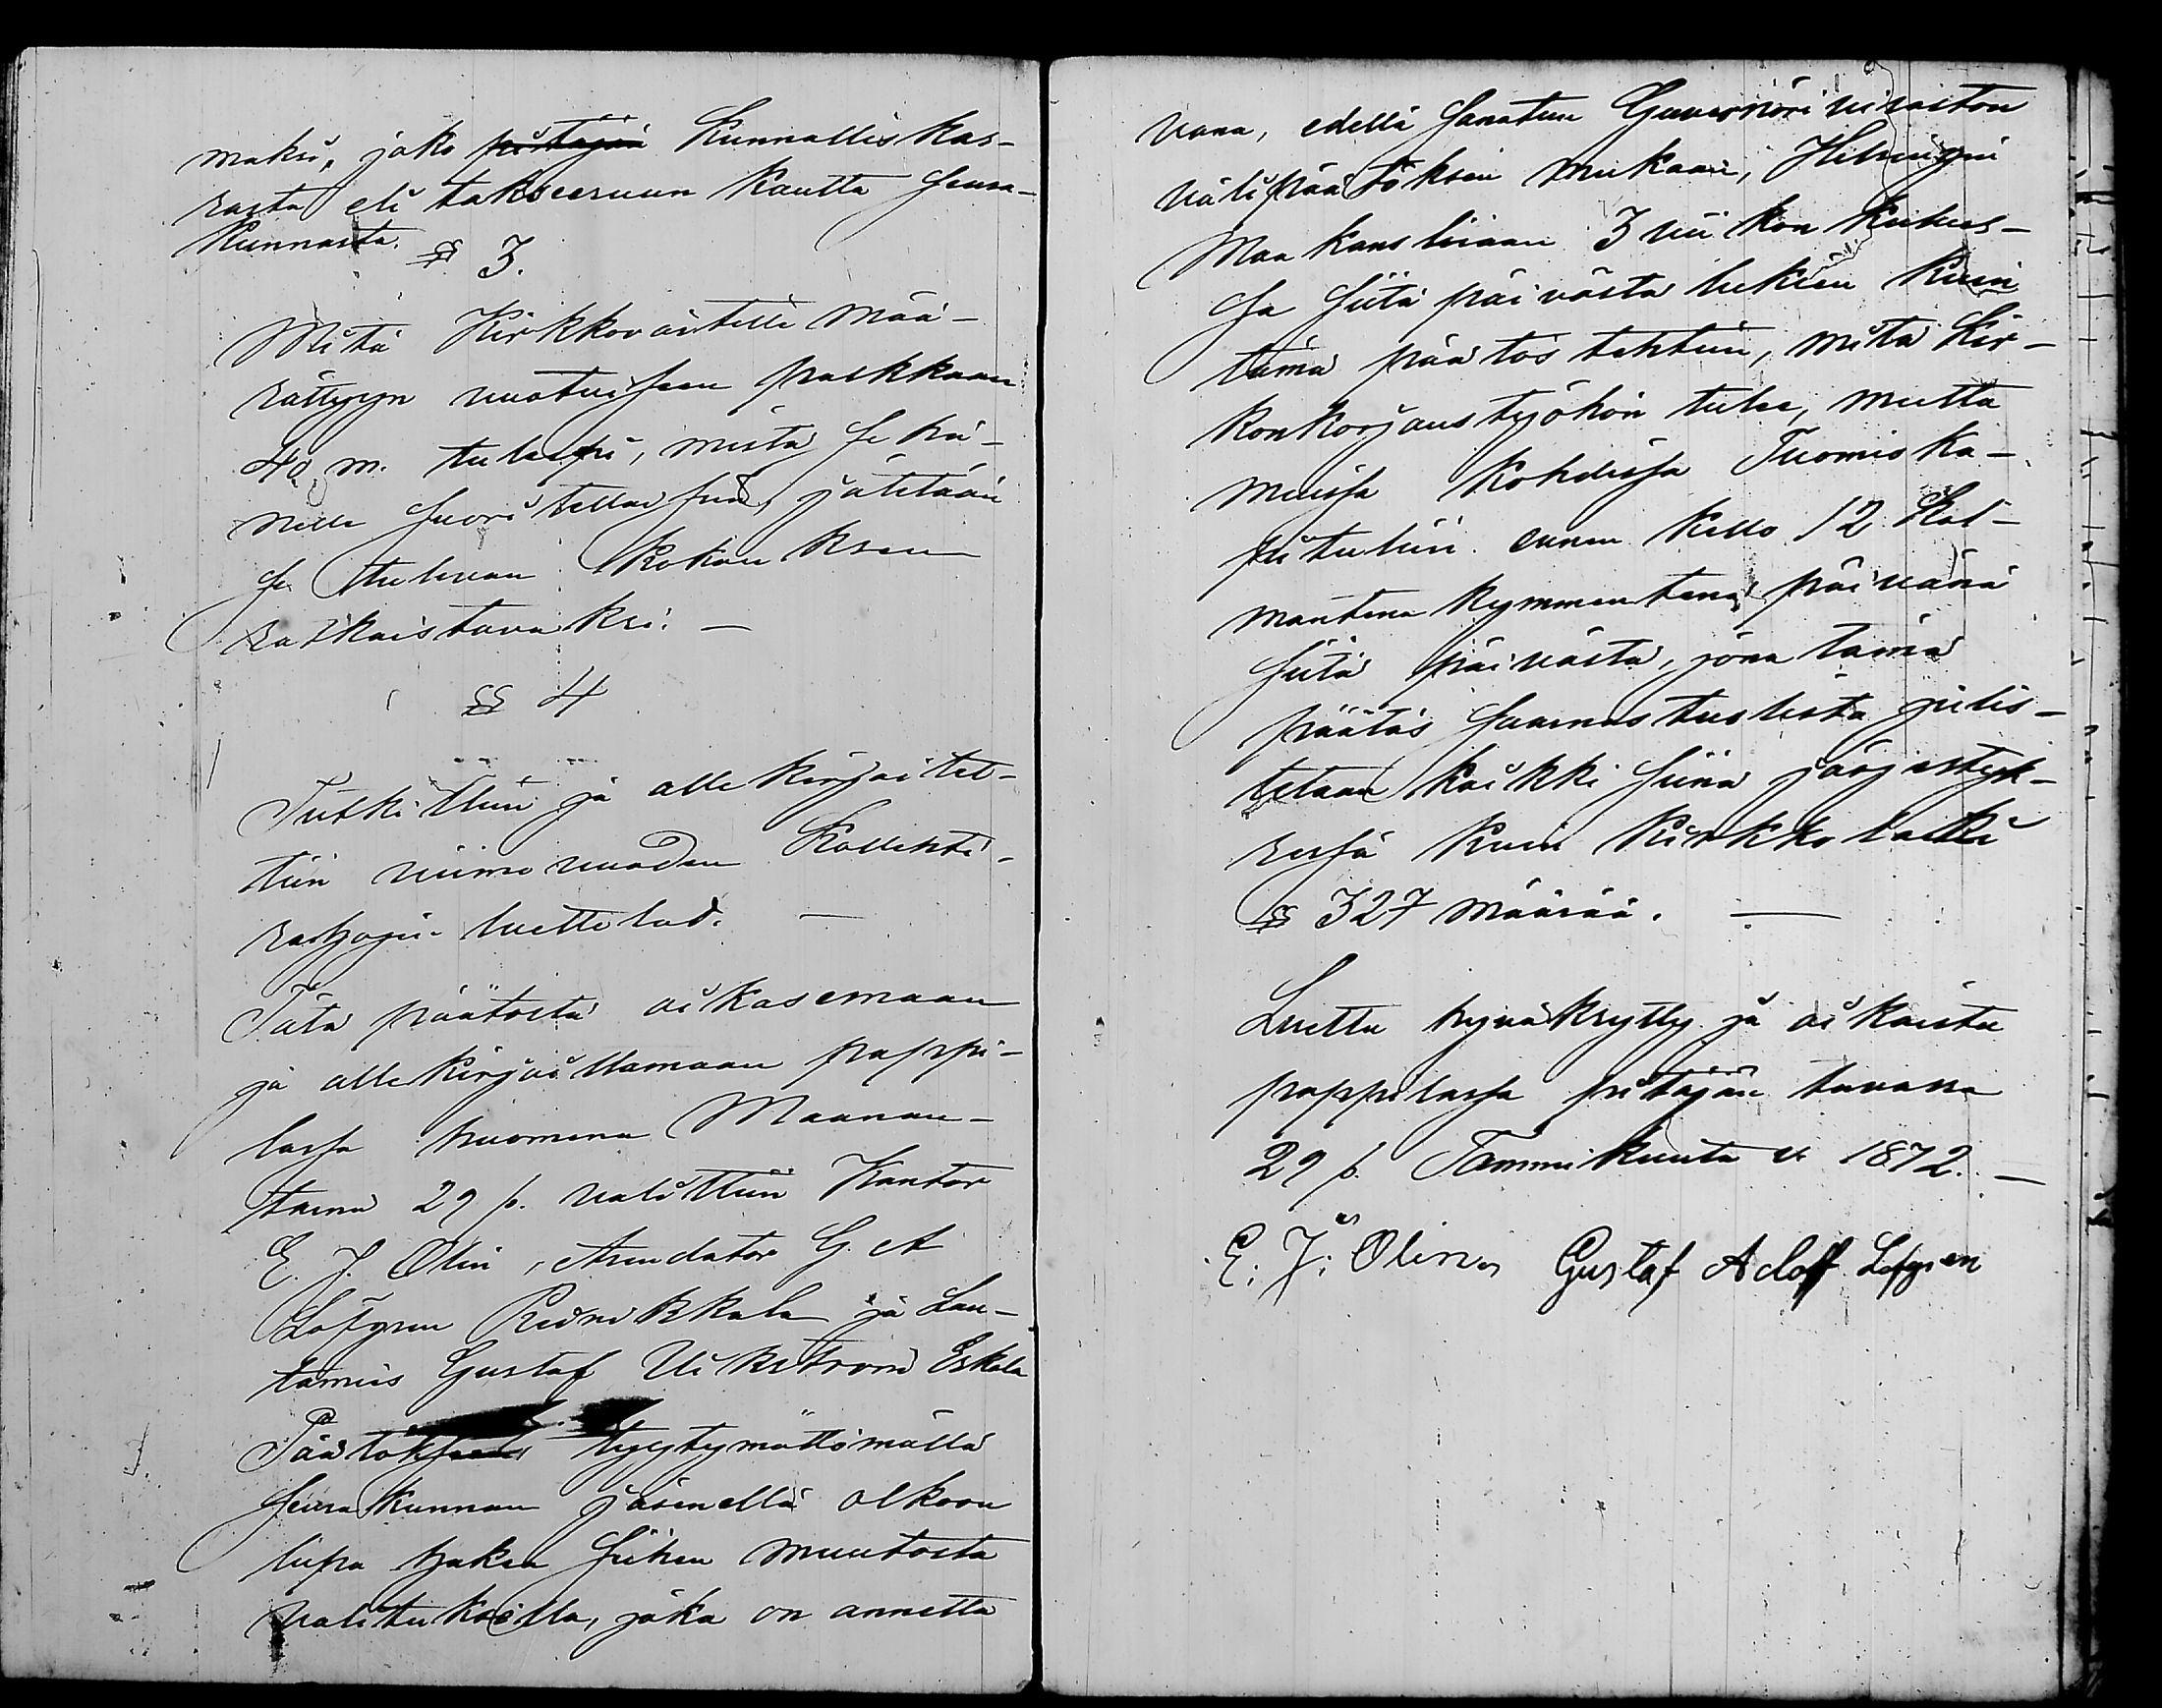 maksu, joko pitäjän Kunnallis kas-
sasta eli takseeruun kautta Seura-
kunnasta.
§ 3.
Mitä Kirkkoväitille mää-
rättyyn vuotuiseen palkkaan
40 m. tuleepi, mistä se hä-
nelle suoritellaisiin, jätetään
se tulevan kokouksen
ratkaistavaksi. —
§ 4
Tutkittiin ja allekirjoitet-
tiin viime vuoden Kollehti-
rahain luettelod. —
Tätä päätöstä oikasemaan
ja allekirjoittamaan pappi-
lassa huomena Maanan-
taina 29 p. valittiin Kantor
E. J. Olin, Arendator G. A
Löfgren Reinikkala ja Lau-
tamies Gustaf Vikström Eskola
Päätökseen tyytymättömällä
seurakunnan jäsenellä olkoon
lupa hakea siihen muutosta
valituksilla, joka on annetta
vana, edellä sanotun Guvernöri viraston
välipäätöksen mukaan, Helsingin
Maa kansliaan 3 viikon kulues-
sa siitä päivästä lukein kuin
tämä päätös tehtiin, mitä Kir-
kon korjaustyöhön tulee, mutta
muissa kohdissa Tuomioka-
pituliin ennen kello 12 Kol-
mantena kymmentenä päivänä
siitä päivästä, jona tämä
päätös saarnastuolista julis-
tetaan kaikki siinä järjestyk-
sessä kuin Kirkkolaki
§ 327 määrää. —
Luettu hyväksytty ja oikaistu
pappilassa pitäjän tuvassa
29 p. Tammikuuta v 1872. —
E. J. Olin Gustaf Adolf Löfgren